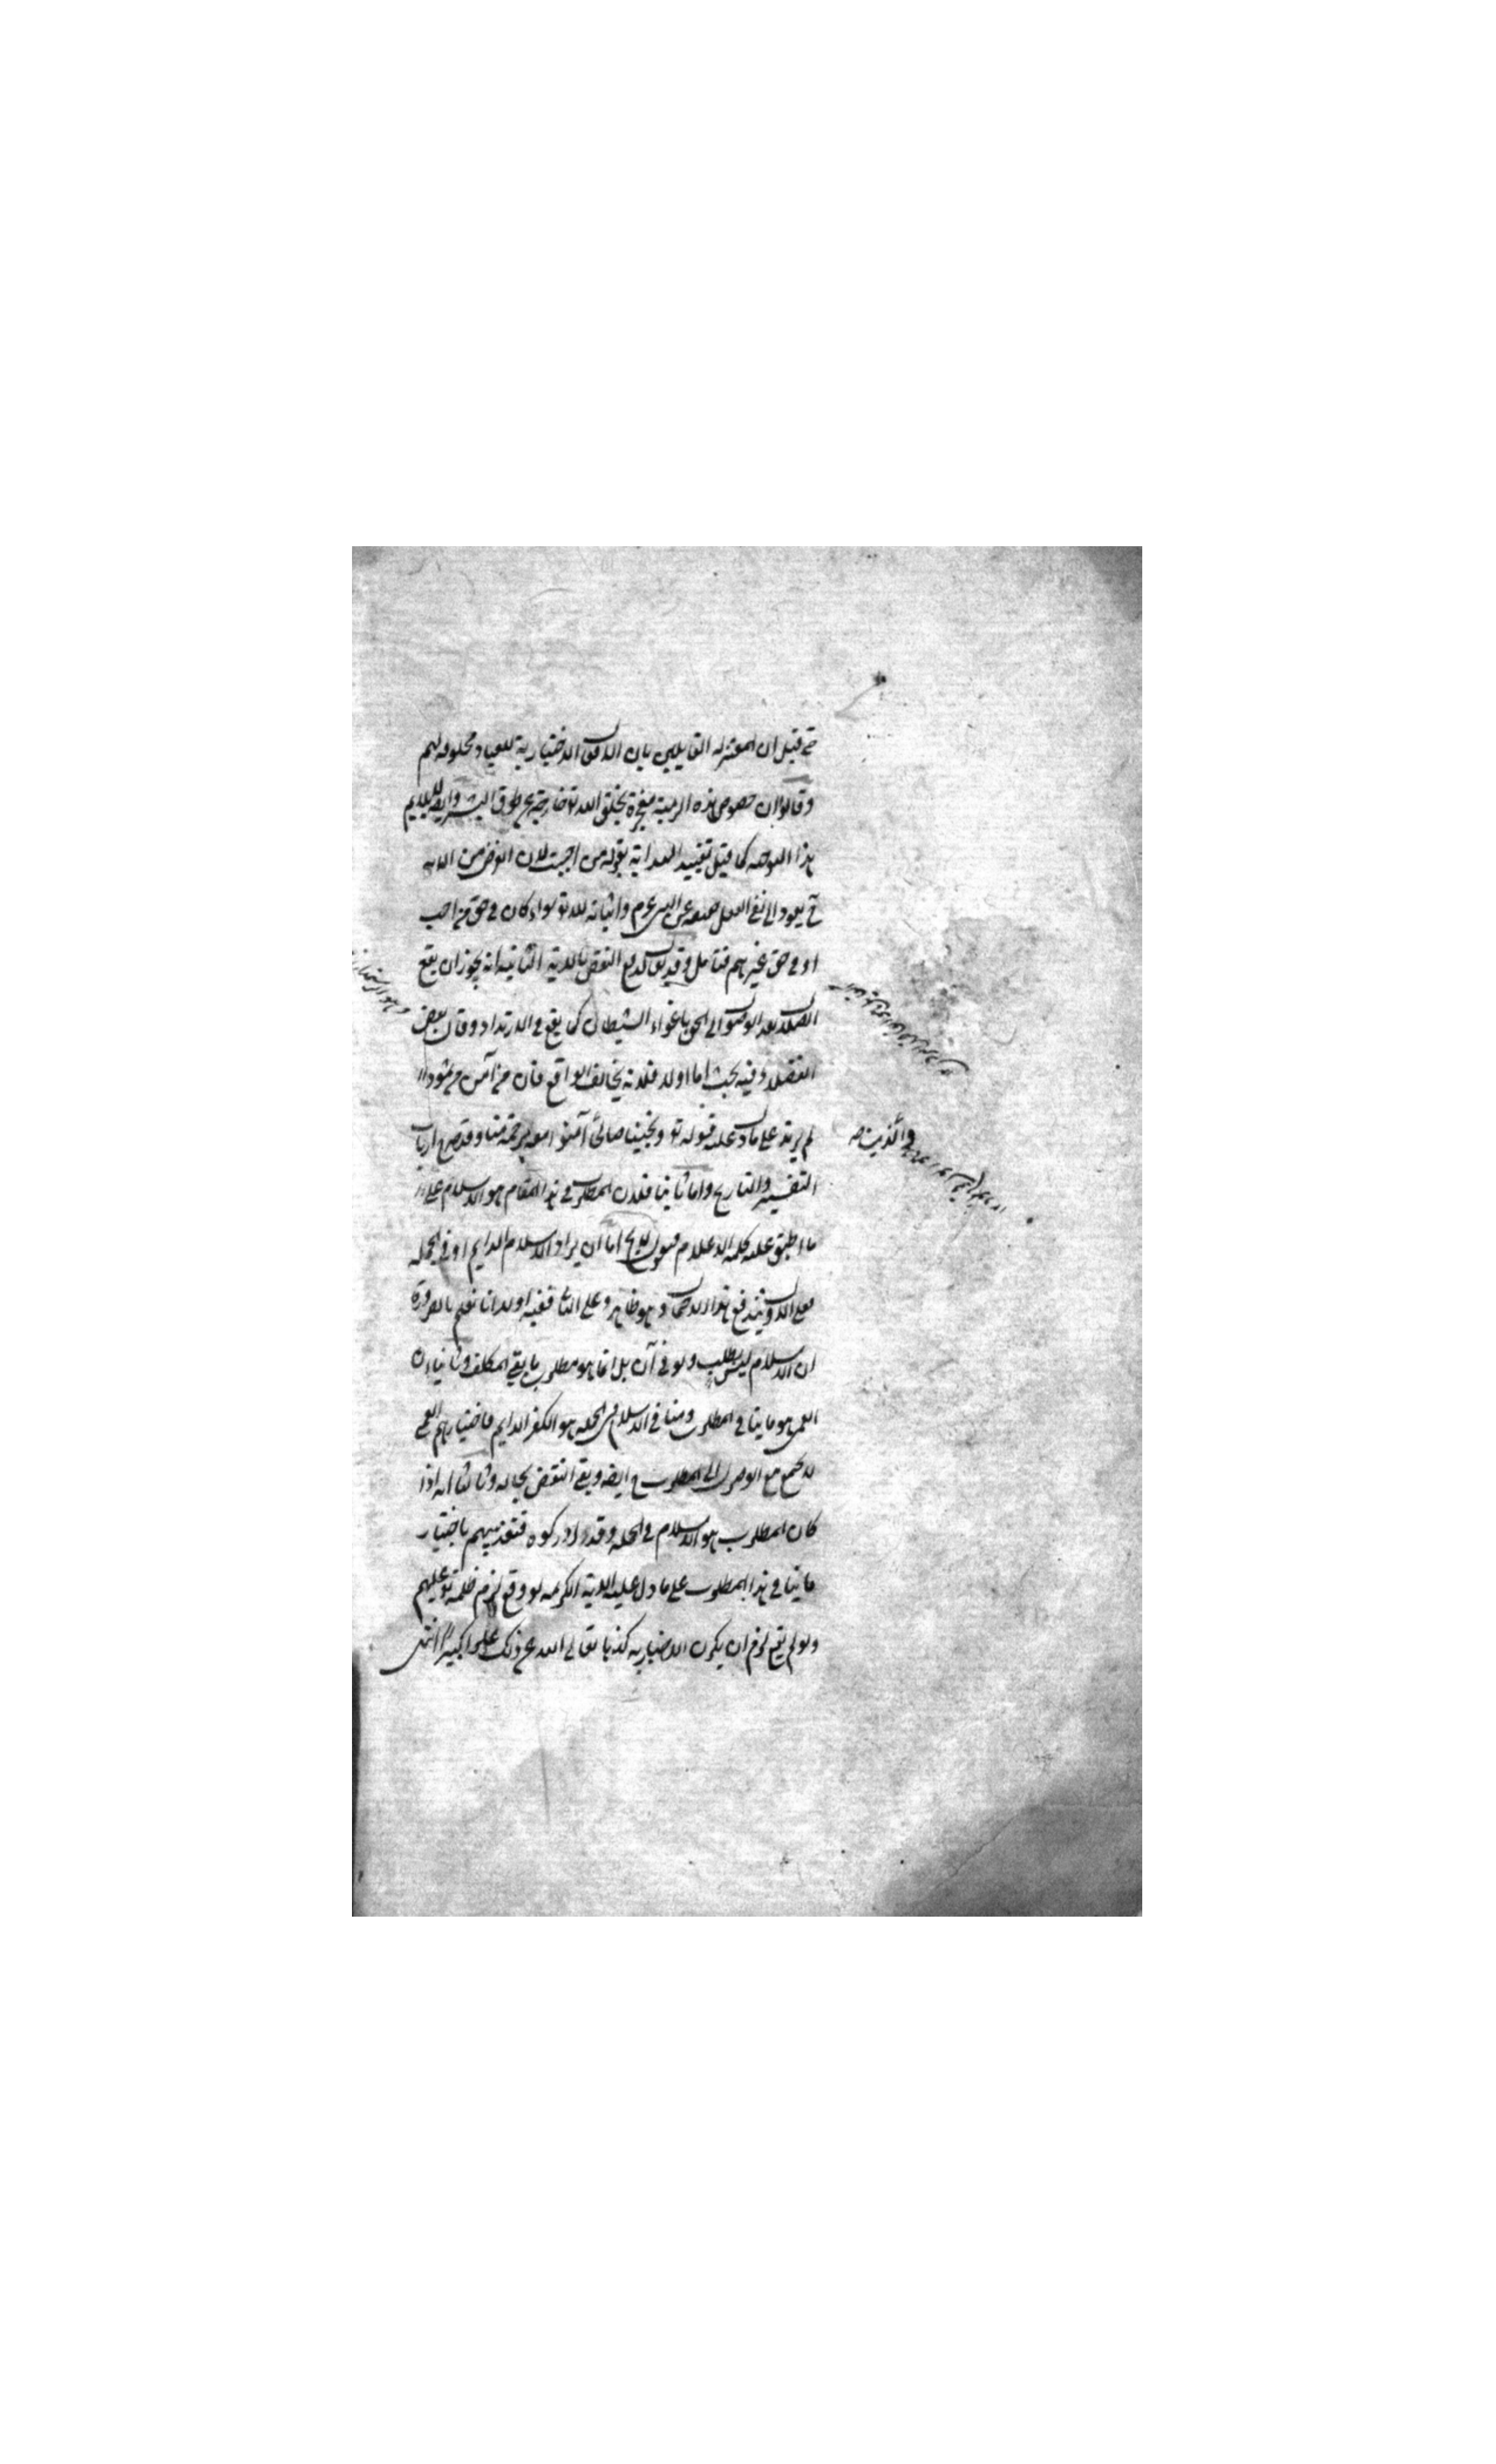 قيل ان المعتزله القايلين بان الافعال الاختيارية للعباد مخلوقه لهم
وقالوا ان خصوص هذه الرمية معجزة بخلق الله تع خارجة عن طوق البشر وايضا لا يلايم
هذا التوجيه كما قيل تقييد الهداية بقوله من احببت لان الغرض من الاية
ح يعود الى نفي الفعل صنعه عن النبي عم واثباته لله تع سواء كان في حق من احب
او في حق غيرهم فتامل وقد يقال لدفع النقض بالاية الثانية انه يجوز ان يقع
الضلال بعد الوصول الى الحق باغواء الشيطان كما يقع في الارتداد وقال بعض
الفضلاء وفيه بحث اما اولا فلانه يخالف الواقع فان من آمن من ثمود
لم يرتد على ما دل عليه قوله تع ونجينا صالحا والذين آمنوا معه برحمة منا وقد صرح ارباب
التفسير والتاريخ واما ثانيا فلان المطلوب في هذا المقام هو الاسلام على
ما اطبق عليه كلمة الاعلام فنقول لا يخ اما ان يراد الاسلام الدايم او في الجملة
فعلى الاول يندفع هذا الاحتمال وهو ظاهر وعلى الثاني ففيه اولا انا نعلم بالضرورة
ان الاسلام ليس يطلب ولو في آن بل انما هو مطلوب ما بقي المكلف وثانيا ان
العمى هو ما ينافي المطلوب ومنافي الاسلام في الجملة هو الكفر الدايم فاختيارهم العمى
لا يجتمع مع الوصول الى المطلوب ح ايضا ويبقى النقض بحاله وثالثا انه اذا
كان المطلوب هو الاسلام في الجملة وقد ادركوه فتعذيبهم باختيار
ما ينافي هذا المطلوب على ما دل عليه الاية الكريمه لو وقع لزم ظلمه تع عليهم
ولو لم يقع لزم ان يكون اخباره كذبا تعالى الله عن ذلك علوا كبيرا انتهى